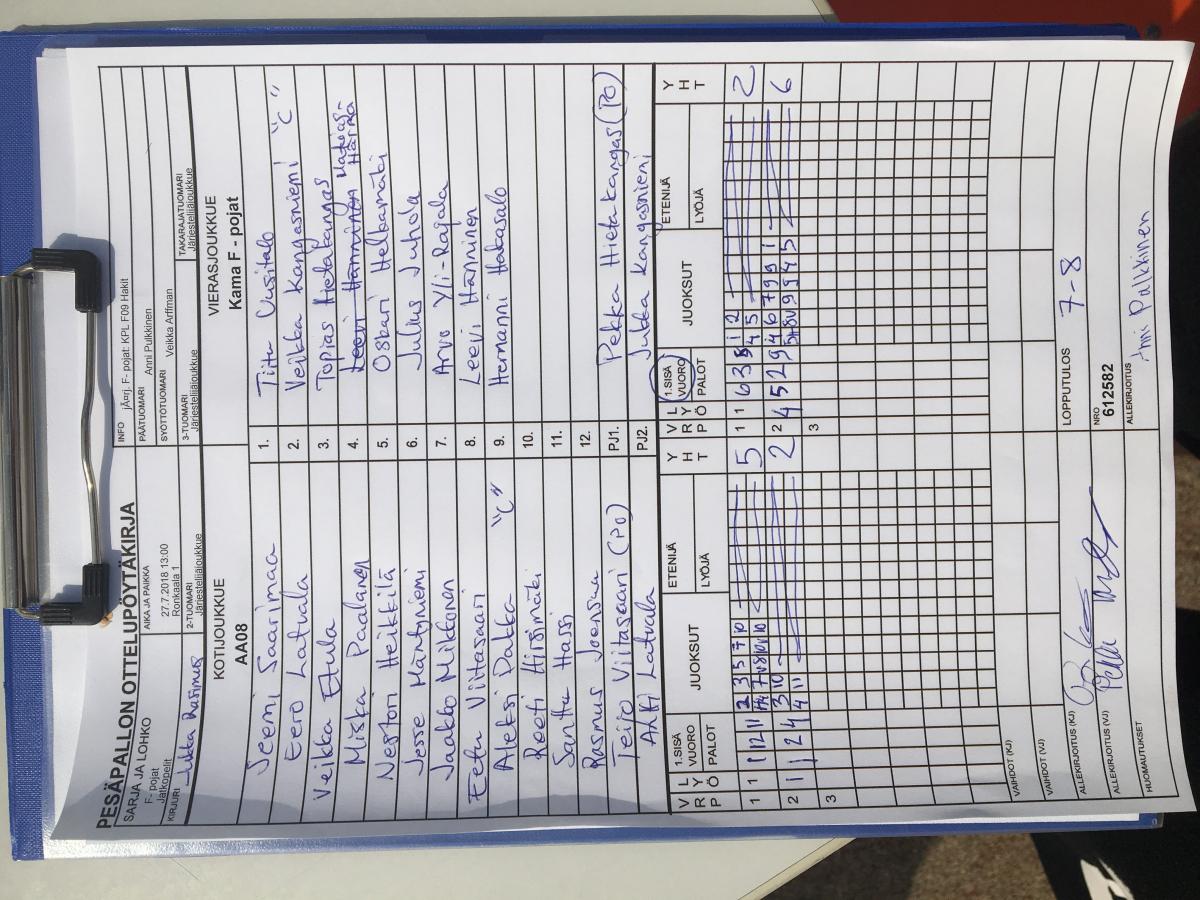 PESÄPALLON OTTELUPÖYTÄKIRJA
SARJA JA LOHKO
F- pojat
Jatkopelit
AIKA JA PAIKKA
27.7.2018 13:00
Ronkaala 1
INFO jÃ¤rj. F- pojat: KPL F09 Hakit
PÄÄTUOMARI Anni Pulkkinen
SYÖTTÖTUOMARI Veikka Arffman
KIRJURI
2-TUOMARI
Järjestelijäjoukkue
3-TUOMARI
Järjestelijäjoukkue
TAKARAJATUOMARI
Järjestelijäjoukkue
KOTIJOUKKUE
AA08
VIERASJOUKKUE
Kama F - pojat
Jeemi Saarimaa 1. Tiitu Uusitalo
Eero Latvala 2. Veikka Kangasniemi "C"
Veikka Etula 3. Topias Hietakangas
Miska Paalanen 4. Leevi Hänninen Matias Härmä
Nestori Heikkilä 5. Oskari
Jesse Mäntyniemi 6. Julius Juhola
Jaakko Mikkonen 7. Arvo Yli-Rajala
Eetu Viitasaari 8. Leevi Hänninen
Aleksi Pakka "C" 9. Hermanni Hakasalo
Roeti Hirsimäki 10.
Santtu Hassi 11.
Rasmus Joensuu 12.
Teijo Viitasaari (PO) PJ1. Pekka Hietakangas (PO)
Antti Latvala PJ2. Jukka Kangasniemi
VRP LYÖ 1.SISÄ VUORO PALOT JUOKSUT ETENIJÄ LYÖJÄ YHT
VRP LYÖ 1.SISÄ VUORO PALOT JUOKSUT ETENIJÄ LYÖJÄ YHT
1 1 1 12 11 2 3 5 7 10 5
1 1 6 3 8 1 2 4 5 2
2 1 1 2 4 3 10 4 11 2
2 4 5 2 9 4 6 7 9 9 1 6
3
3
VAIHDOT (KJ)
VAIHDOT (VJ)
ALLEKIRJOITUS (KJ)
ALLEKIRJOITUS (VJ)
HUOMAUTUKSET
LOPPUTULOS 7-8
NRO
612582
ALLEKIRJOITUS
Anni Pulkkinen